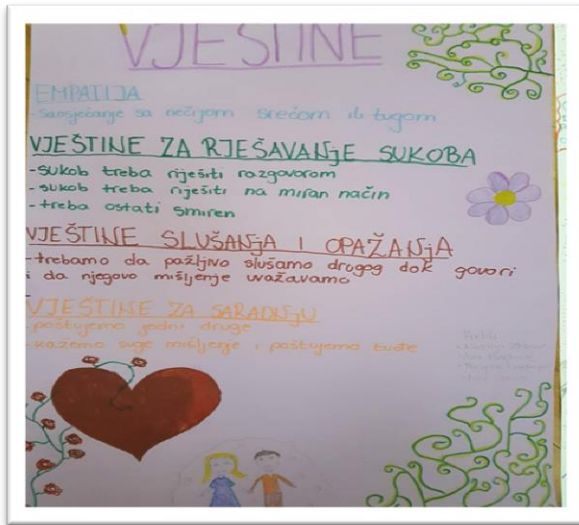 VJEŠTINE
EMPATIJA
-saosjećanje sa nečijom srećom ili tugom
VJEŠTINE ZA RJEŠAVANJE SUKOBA
-sukob treba riješiti razgovorom
-sukob treba riješiti na miran način
-treba ostati smiren
VJEŠTINE SLUŠANJA I OPAŽANJA
-trebamo da pažljivo slušamo drugog dok govori
i da njegovo mišljenje uvažavamo
VJEŠTINE ZA SARADNJU
-poštujemo jedni druge
-kažemo svoje mišljenje i poštujemo tuđe